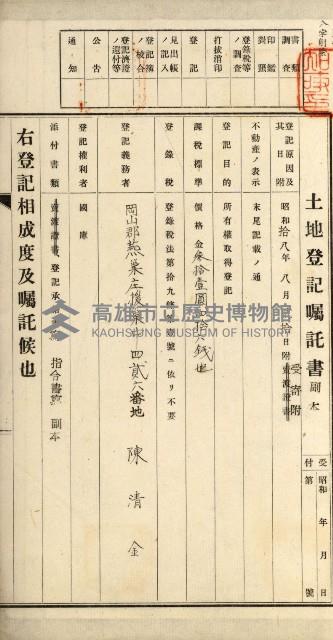 書類調査
印鑑對照
登錄稅等ノ調查
打拔消印
登記
見出帳ノ記入
登記簿ノ校合
登記濟證ノ還付等
公告
通知
土地登記囑託書
副本
受付
昭和 年 月 日
第 號
登記原因及其日附
昭和拾八年八月 拾日附
受寄附
賣渡證書
不動產ノ表示
末尾記載ノ通
登記ノ目的
所有權取得登記
課稅標準
價格金參拾壹圓四拾六錢也
登錄稅
登錄稅法第拾九條 壹號ニ依リ不要
登記義務者
岡山郡燕巢庄
四貳六番地
陳清金
登記權利者
國庫
添付書類
賣渡證書
登記承諾書
指令書寫
副本
右登記相成度及囑託候也
高雄市立歷史博物館
KAOHSIUNG MUSEUM OF HISTORY